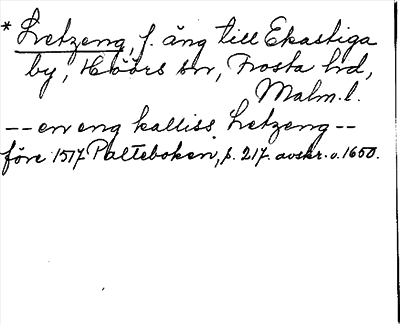 * Lretzeng, f. äng till Ekastiga
by, Höörs sn, Frosta hd,
Malm. l.
-- en eng kalliss Lretzeng --
före 1517 Palteboken, s. 217. avskr. o. 1650.